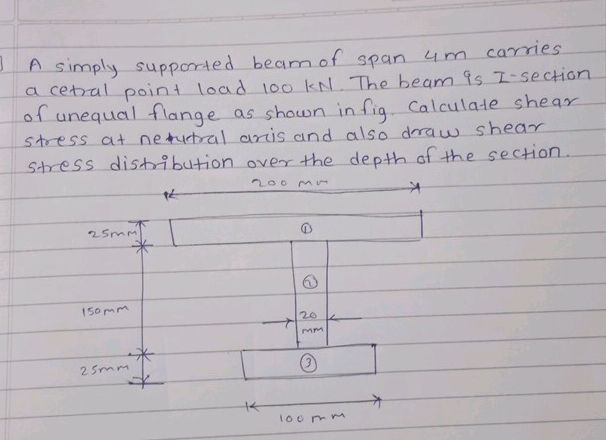 A simply supported beam of span 4m carries
a cetral point load 100 kN. The beam is I-section
of unequal flange as shown in fig. Calculate shear
stress at netutral axis and also draw shear
stress distribution over the depth of the section.
200 mm
25mm
①
②
150mm
20
mm
25mm
③
100 mm